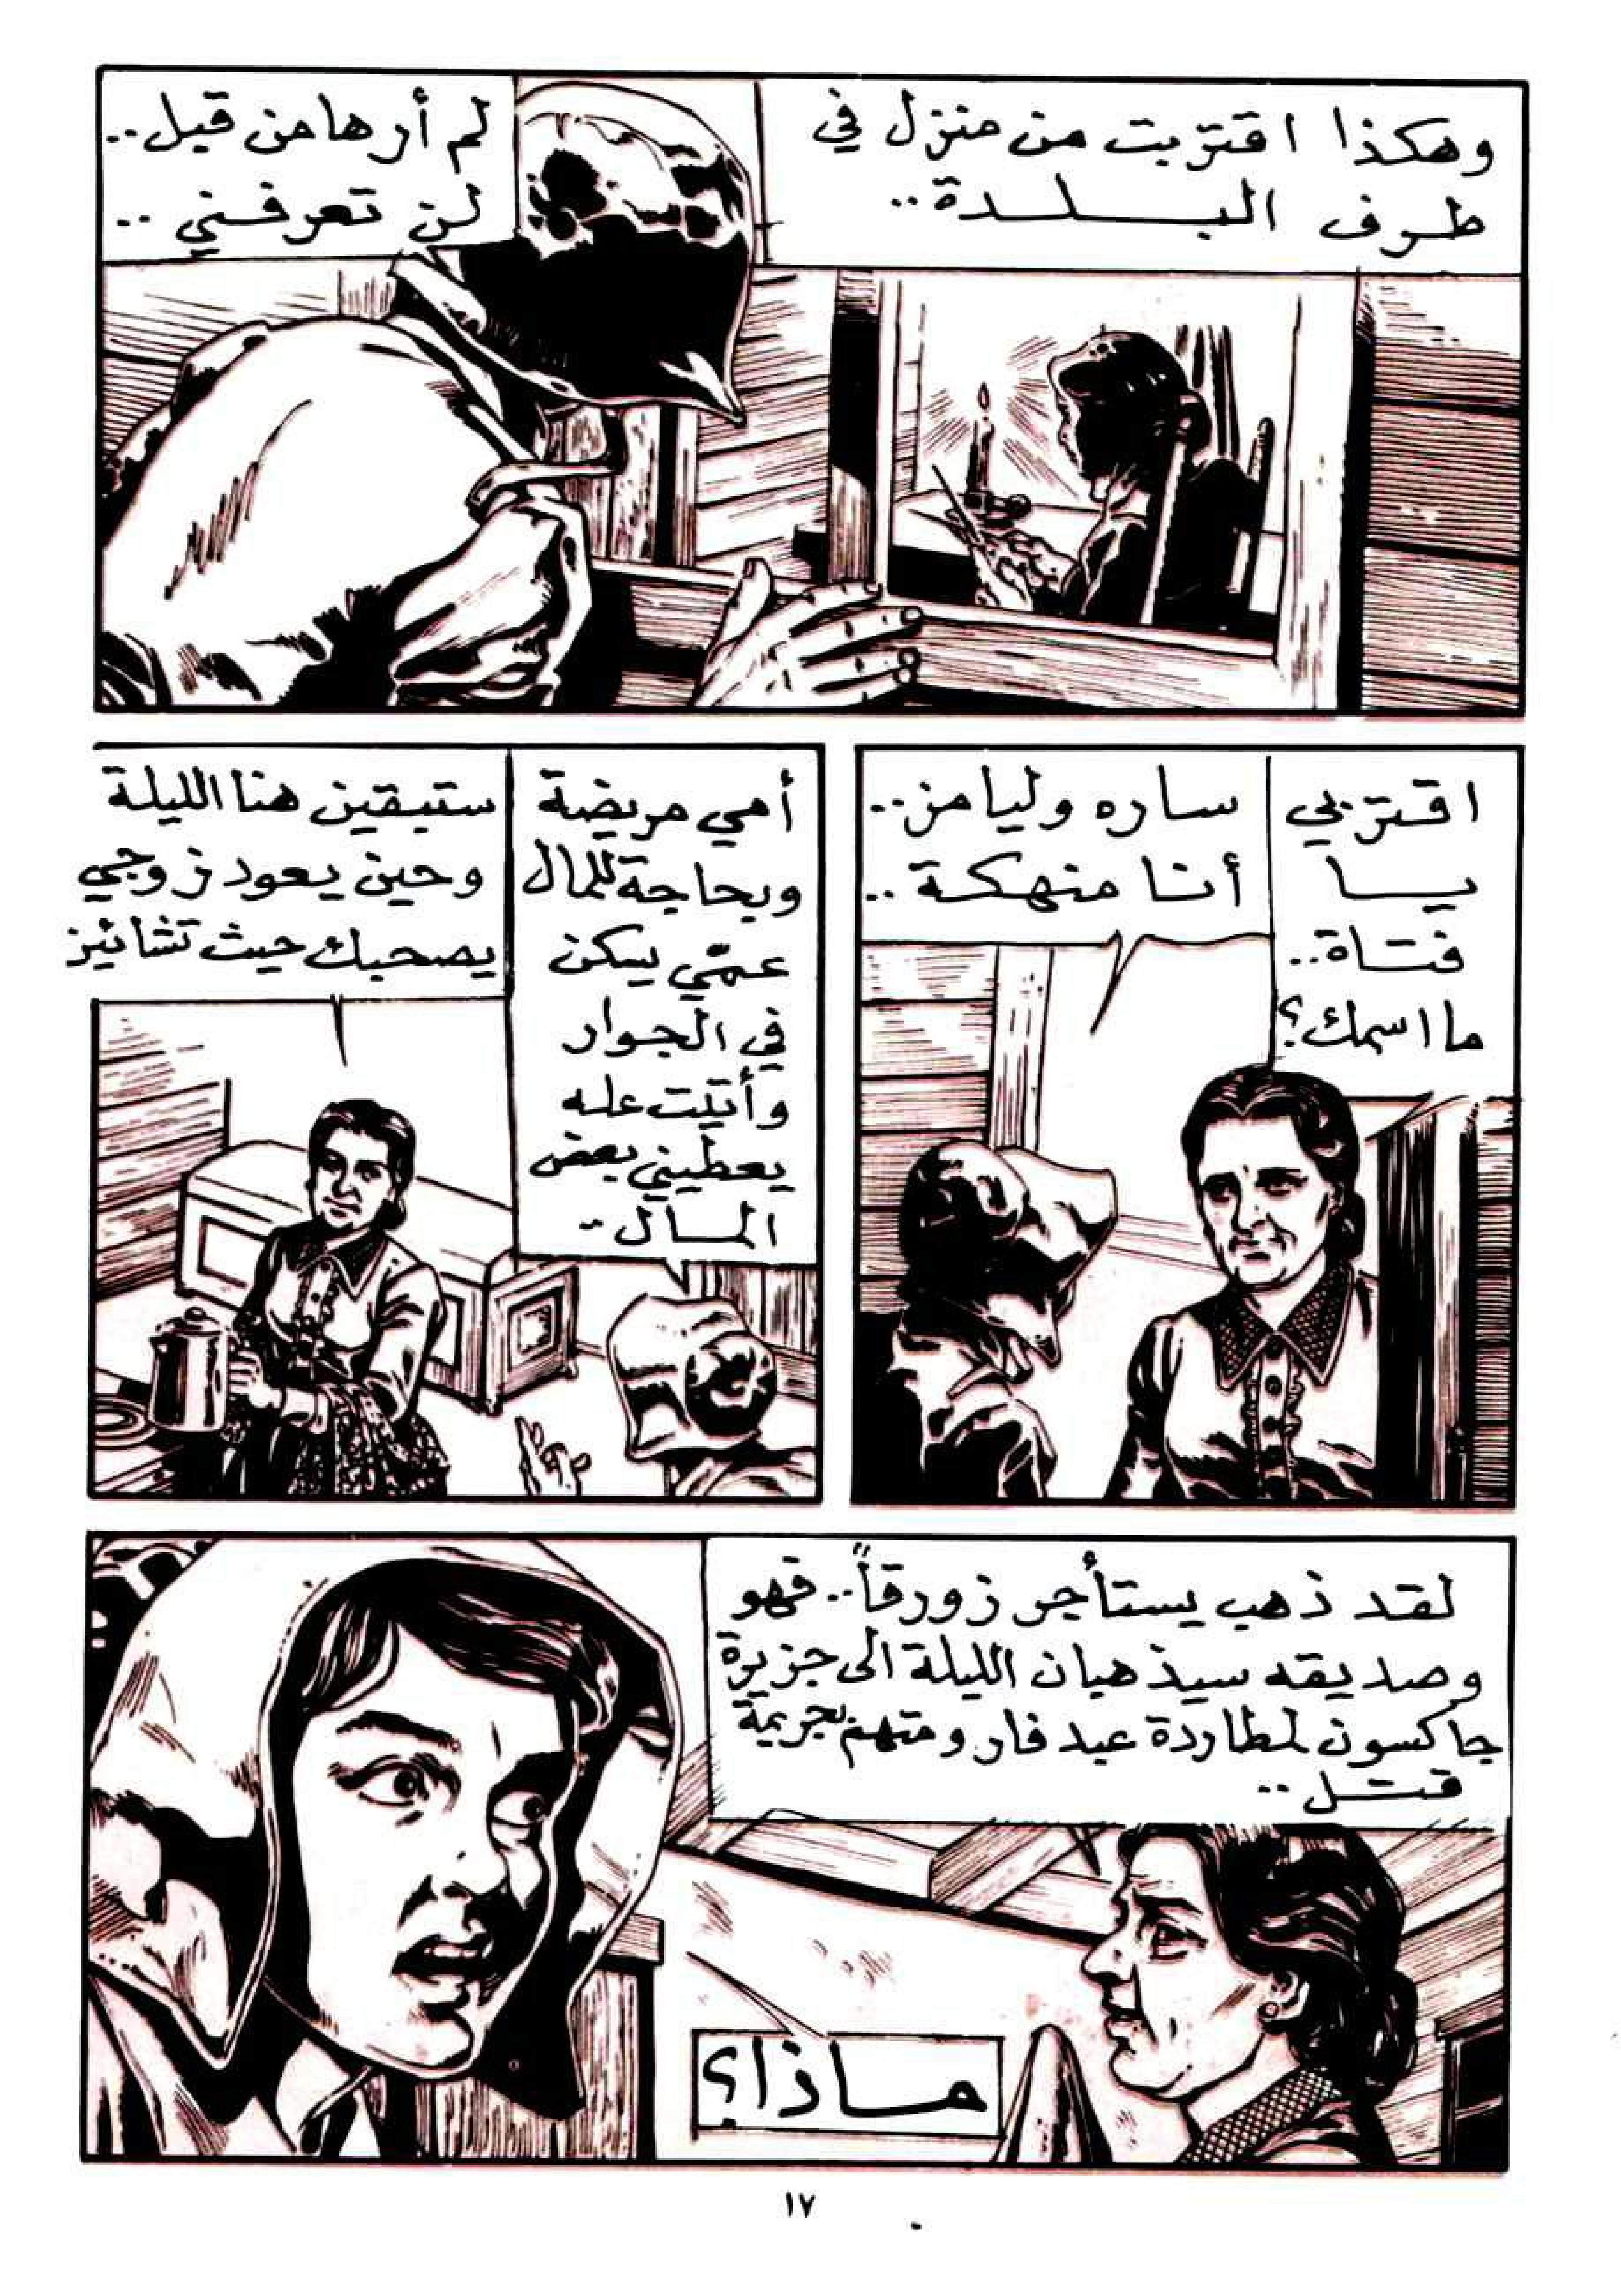 وهكذا اقتربت من منزل في
طرف البلدة..
لم أرها من قبل..
لن تعرفني..
اقتربي
يا
فتاة..
ما اسمك؟
ساره وليامز..
أنا منهكة..
أمي مريضة
وبحاجة للمال
عمّي يسكن
في الجوار
وأتيت عله
يعطيني بعض
المال..
ستبقين هنا الليلة
وحين يعود زوجي
يصحبك حيث تشائين
لقد ذهب يستأجر زورقاً.. فهو
وصديقه سيذهبان الليلة الى جزيرة
جاكسون لمطاردة عبد فار ومتهم بجريمة
قتل..
ماذا؟
١٧